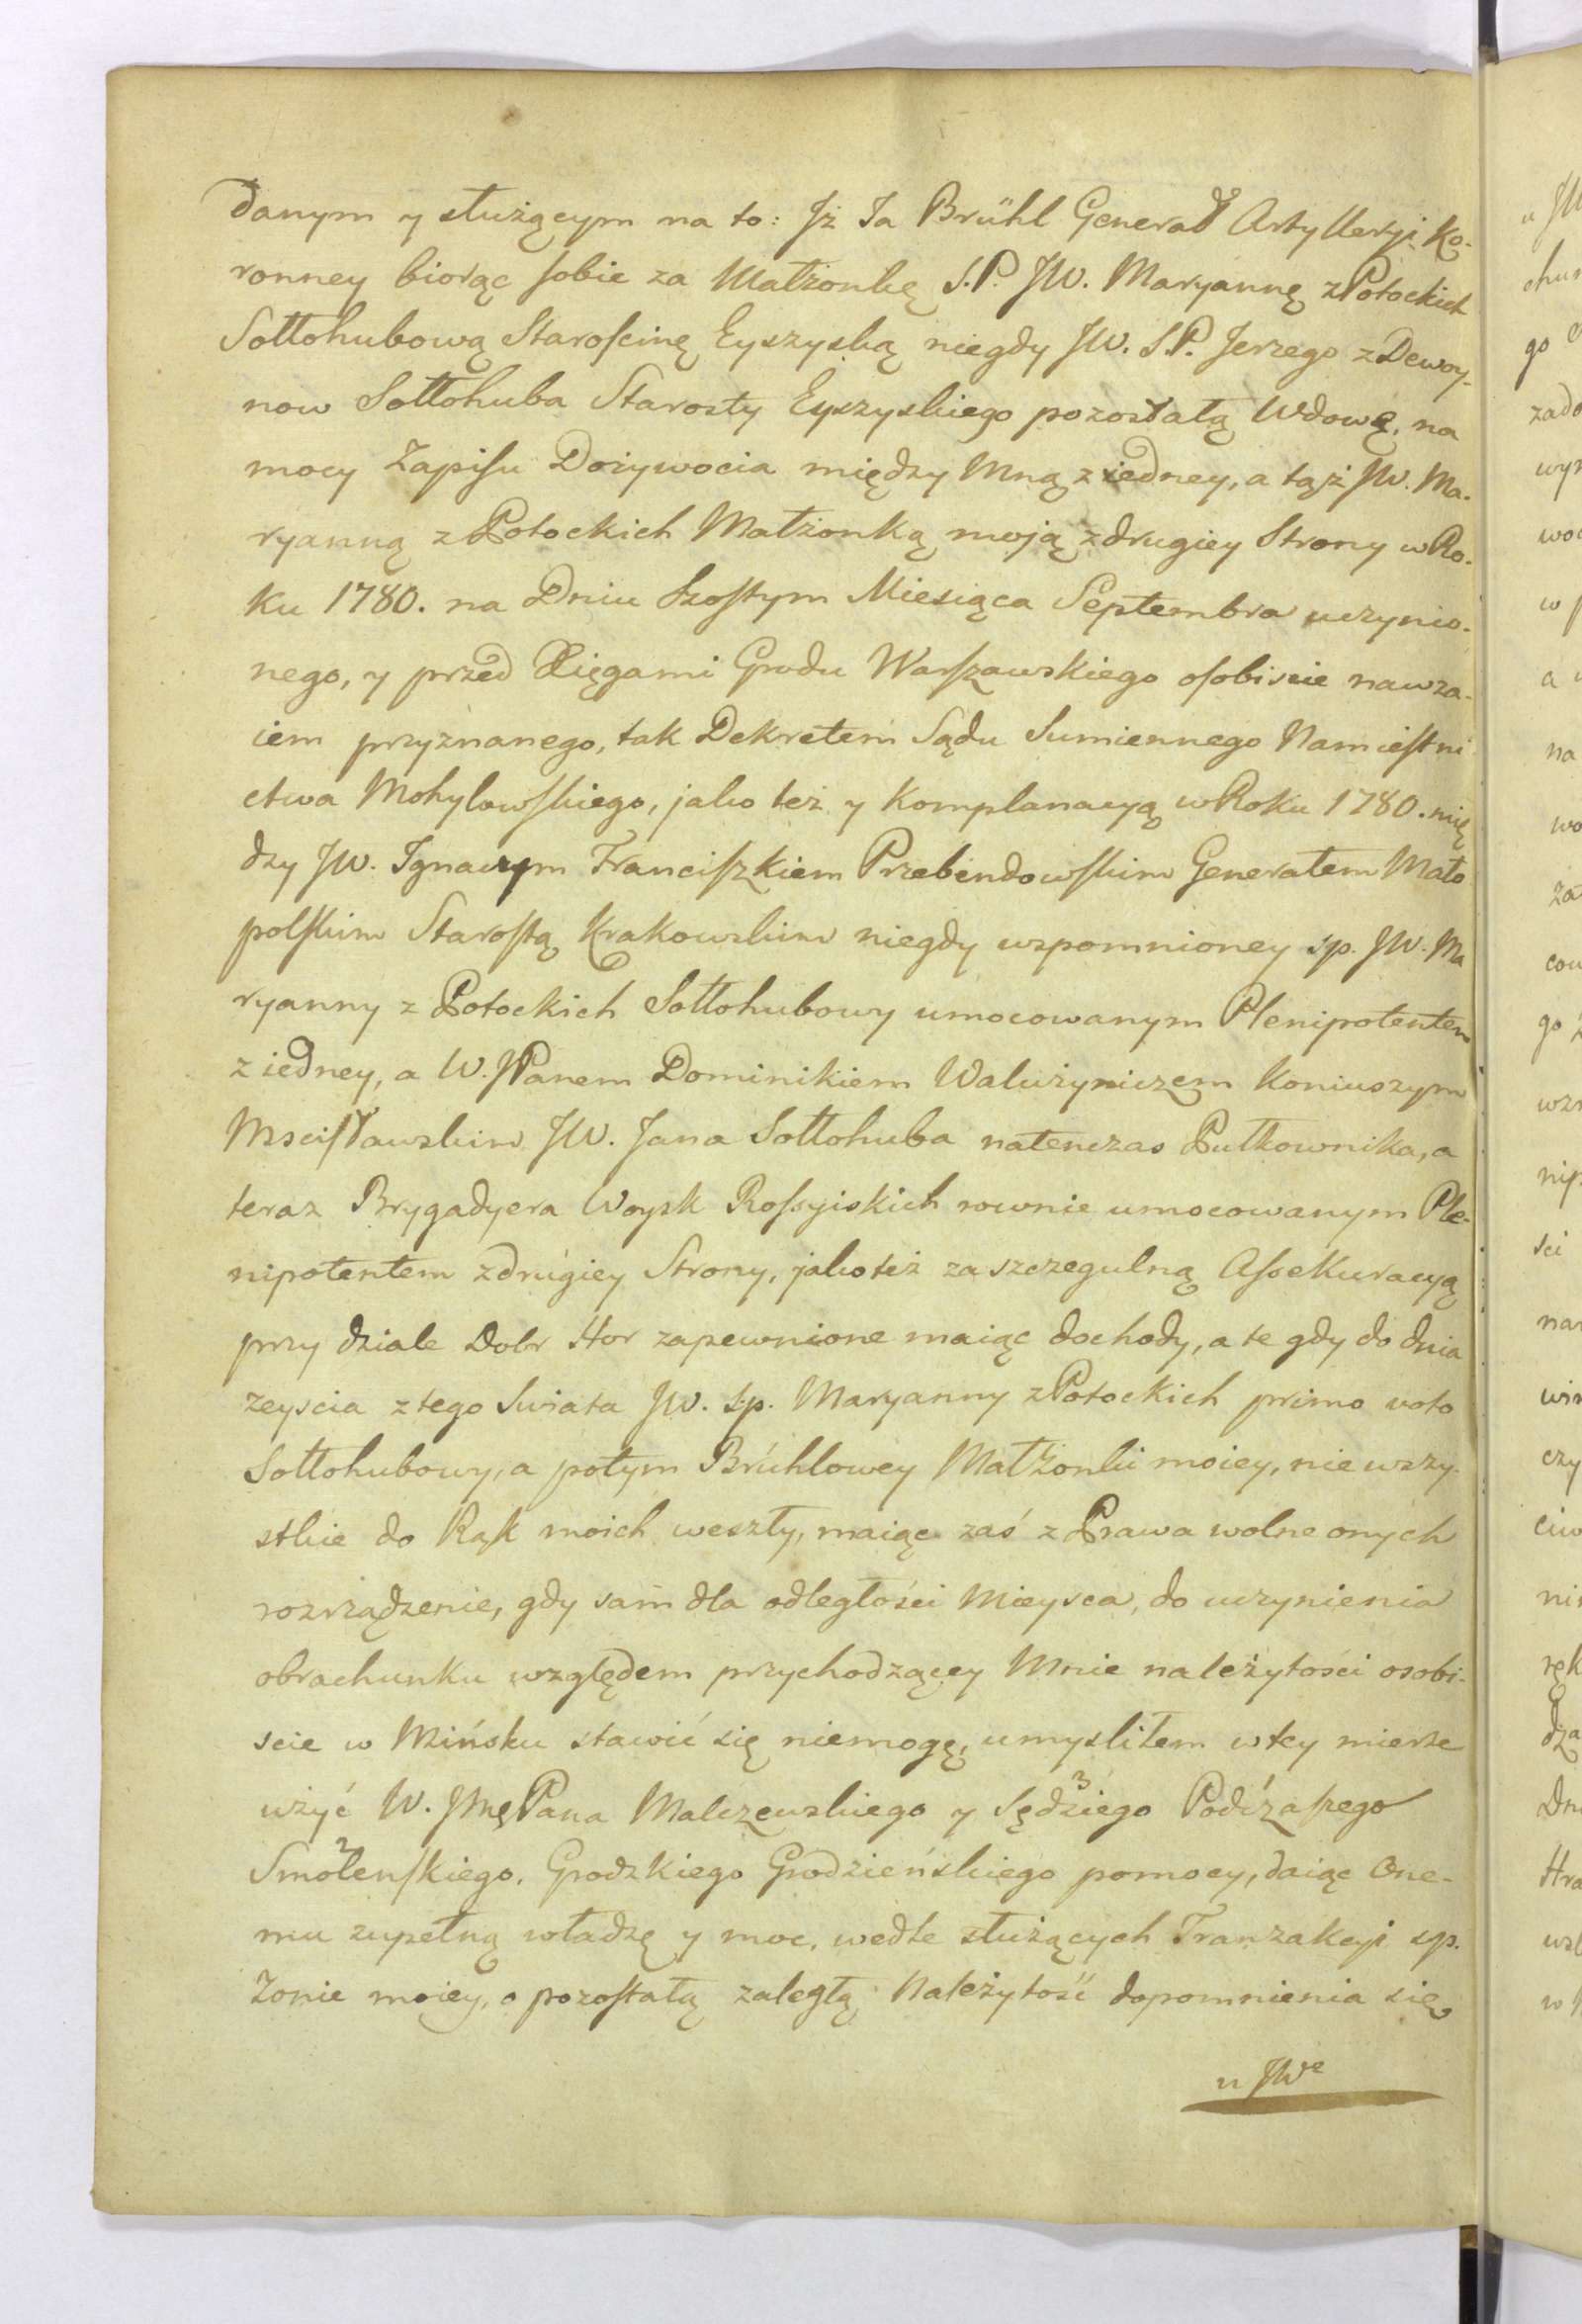 Danym y służącym na to: Jż Ja Brühl Generał Artylleryi Ko-
ronney biorąc sobie za Małżonkę S.P. JW. Maryannę z Potockich
Sołłohubową Starościnę Eyszyską niegdy JW. S.P. Jerzego z Dewoy-
now Sołłohuba Starosty Eyszyskiego pozostałą Wdowę, na
mocy Zapisu Dożywocia między Mną z iedney, a tąż JW. Ma-
ryanną z Potockich Małżonką moją z drugiey Strony w Ro-
ku 1780. na Dniu Szostym Miesiąca Septembra uczynio-
nego, y przed Xięgami Grodu Warszawskiego osobiscie nawza-
iem przyznanego, tak Dekretem Sądu Sumiennego Namiestni
ctwa Mohylowskiego, jako też y Komplanacyą w Roku 1780. mię
dzy JW. Ignacym Franciszkiem Przebendowskim Generałem Mało
polskim Starostą Krakowskim niegdy wspomnioney sp. JW. Ma
ryanny z Potockich Sołłohubowy umocowanym Plenipotentem
z iedney, a W. JPanem Dominikiem Waluzyniczem Koniuszym
Mscisławskim JW. Jana Sołłohuba natenczas Pułkownika, a
teraz Brygadyera Woysk Rossyiskich rownie umocowanym Ple-
nipotentem z drugiey Strony, jako też za szczegulną Assekuracyą
przy dziale Dobr Hor zapewnione maiąc dochody, a te gdy do dnia
zeyscia z tego Swiata JW. s.p. Maryanny z Potockich primo voto
Sołłohubowy, a potym Brühlowey Małżonki moiey, nie wszy-
stkie do Rąk moich weszły, maiąc zaś z Prawa wolne onych
rozrządzenie, gdy sam dla odległości Mieysca, do uczynienia
obrachunku względem przychodzącey Mnie należytości osobi-
scie w Mińsku stawić się niemogę, umysliłem w tey mierze
użyć W. JmęPana Malczewskiego y Sędziego 3 Podczaszego
Smolenskiego 2, Grodzkiego Grodzieńskiego pomocy, daiąc One-
mu zupełną władzę y moc, wedle służących Tranzakcyi sp.
Zonie moiey, o pozostałą zaległą Należytość dopomnienia się
u JWe